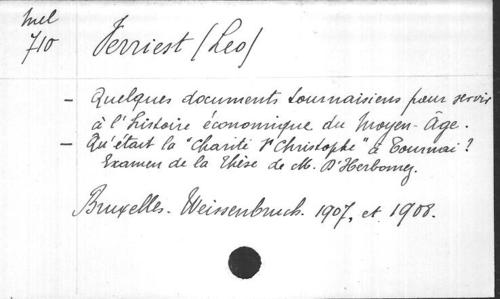 Mel
710
Verriest (Leo)
- Quelques documents tournaisiens pour servir
à l'histoire économique du Moyen-Âge.
- Qu'était la "Charité St Christophe" à Tournai ?
Examen de la thèse de M. D'Herbomez.
Bruxelles. Weissenbruch. 1907, et 1908.